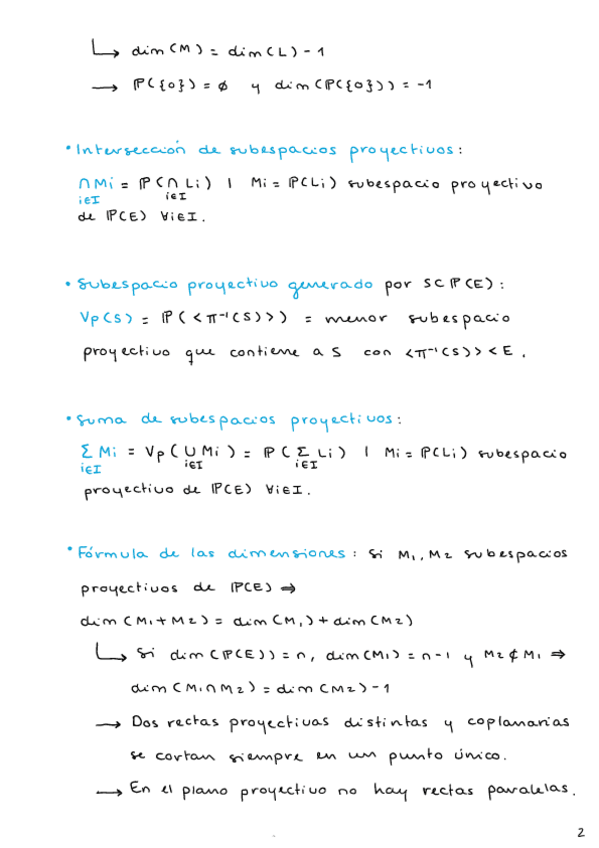 ↳ dim(M) = dim(L) - 1
→ ℙ({0}) = ∅ y dim(ℙ({0})) = -1
• Intersección de subespacios proyectivos:
∩ Mi = ℙ(∩ Li) | Mi = ℙ(Li) subespacio proyectivo
i∈I i∈I
de ℙ(E) ∀i∈I.
• Subespacio proyectivo generado por S⊂ℙ(E):
Vp(S) = ℙ(<π⁻¹(S)>) = menor subespacio
proyectivo que contiene a S con <π⁻¹(S)> < E.
• Suma de subespacios proyectivos:
Σ Mi = Vp(∪ Mi) = ℙ(Σ Li) | Mi = ℙ(Li) subespacio
i∈I i∈I i∈I
proyectivo de ℙ(E) ∀i∈I.
• Fórmula de las dimensiones: si M₁, M₂ subespacios
proyectivos de ℙ(E) ⇒
dim(M₁+M₂) = dim(M₁) + dim(M₂)
↳ Si dim(ℙ(E)) = n, dim(M₁) = n-1 y M₂ ⊄ M₁ ⇒
dim(M₁∩M₂) = dim(M₂) - 1
→ Dos rectas proyectivas distintas y coplanarias
se cortan siempre en un punto único.
→ En el plano proyectivo no hay rectas paralelas.
2